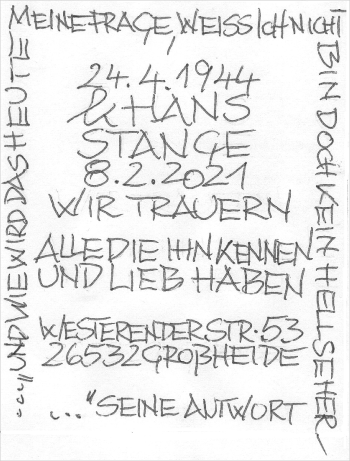 ...„UND WIE WIRD DAS HEUTE
MEINE FRAGE, WEISS ICH NICHT
BIN DOCH KEIN HELLSEHER
24.4.1944
& HANS
STANGE
8.2.2021
WIR TRAUERN
ALLE DIE IHN KENNEN
UND LIEB HABEN
WESTERENDER STR. 53
26532 GROßHEIDE
..." SEINE ANTWORT